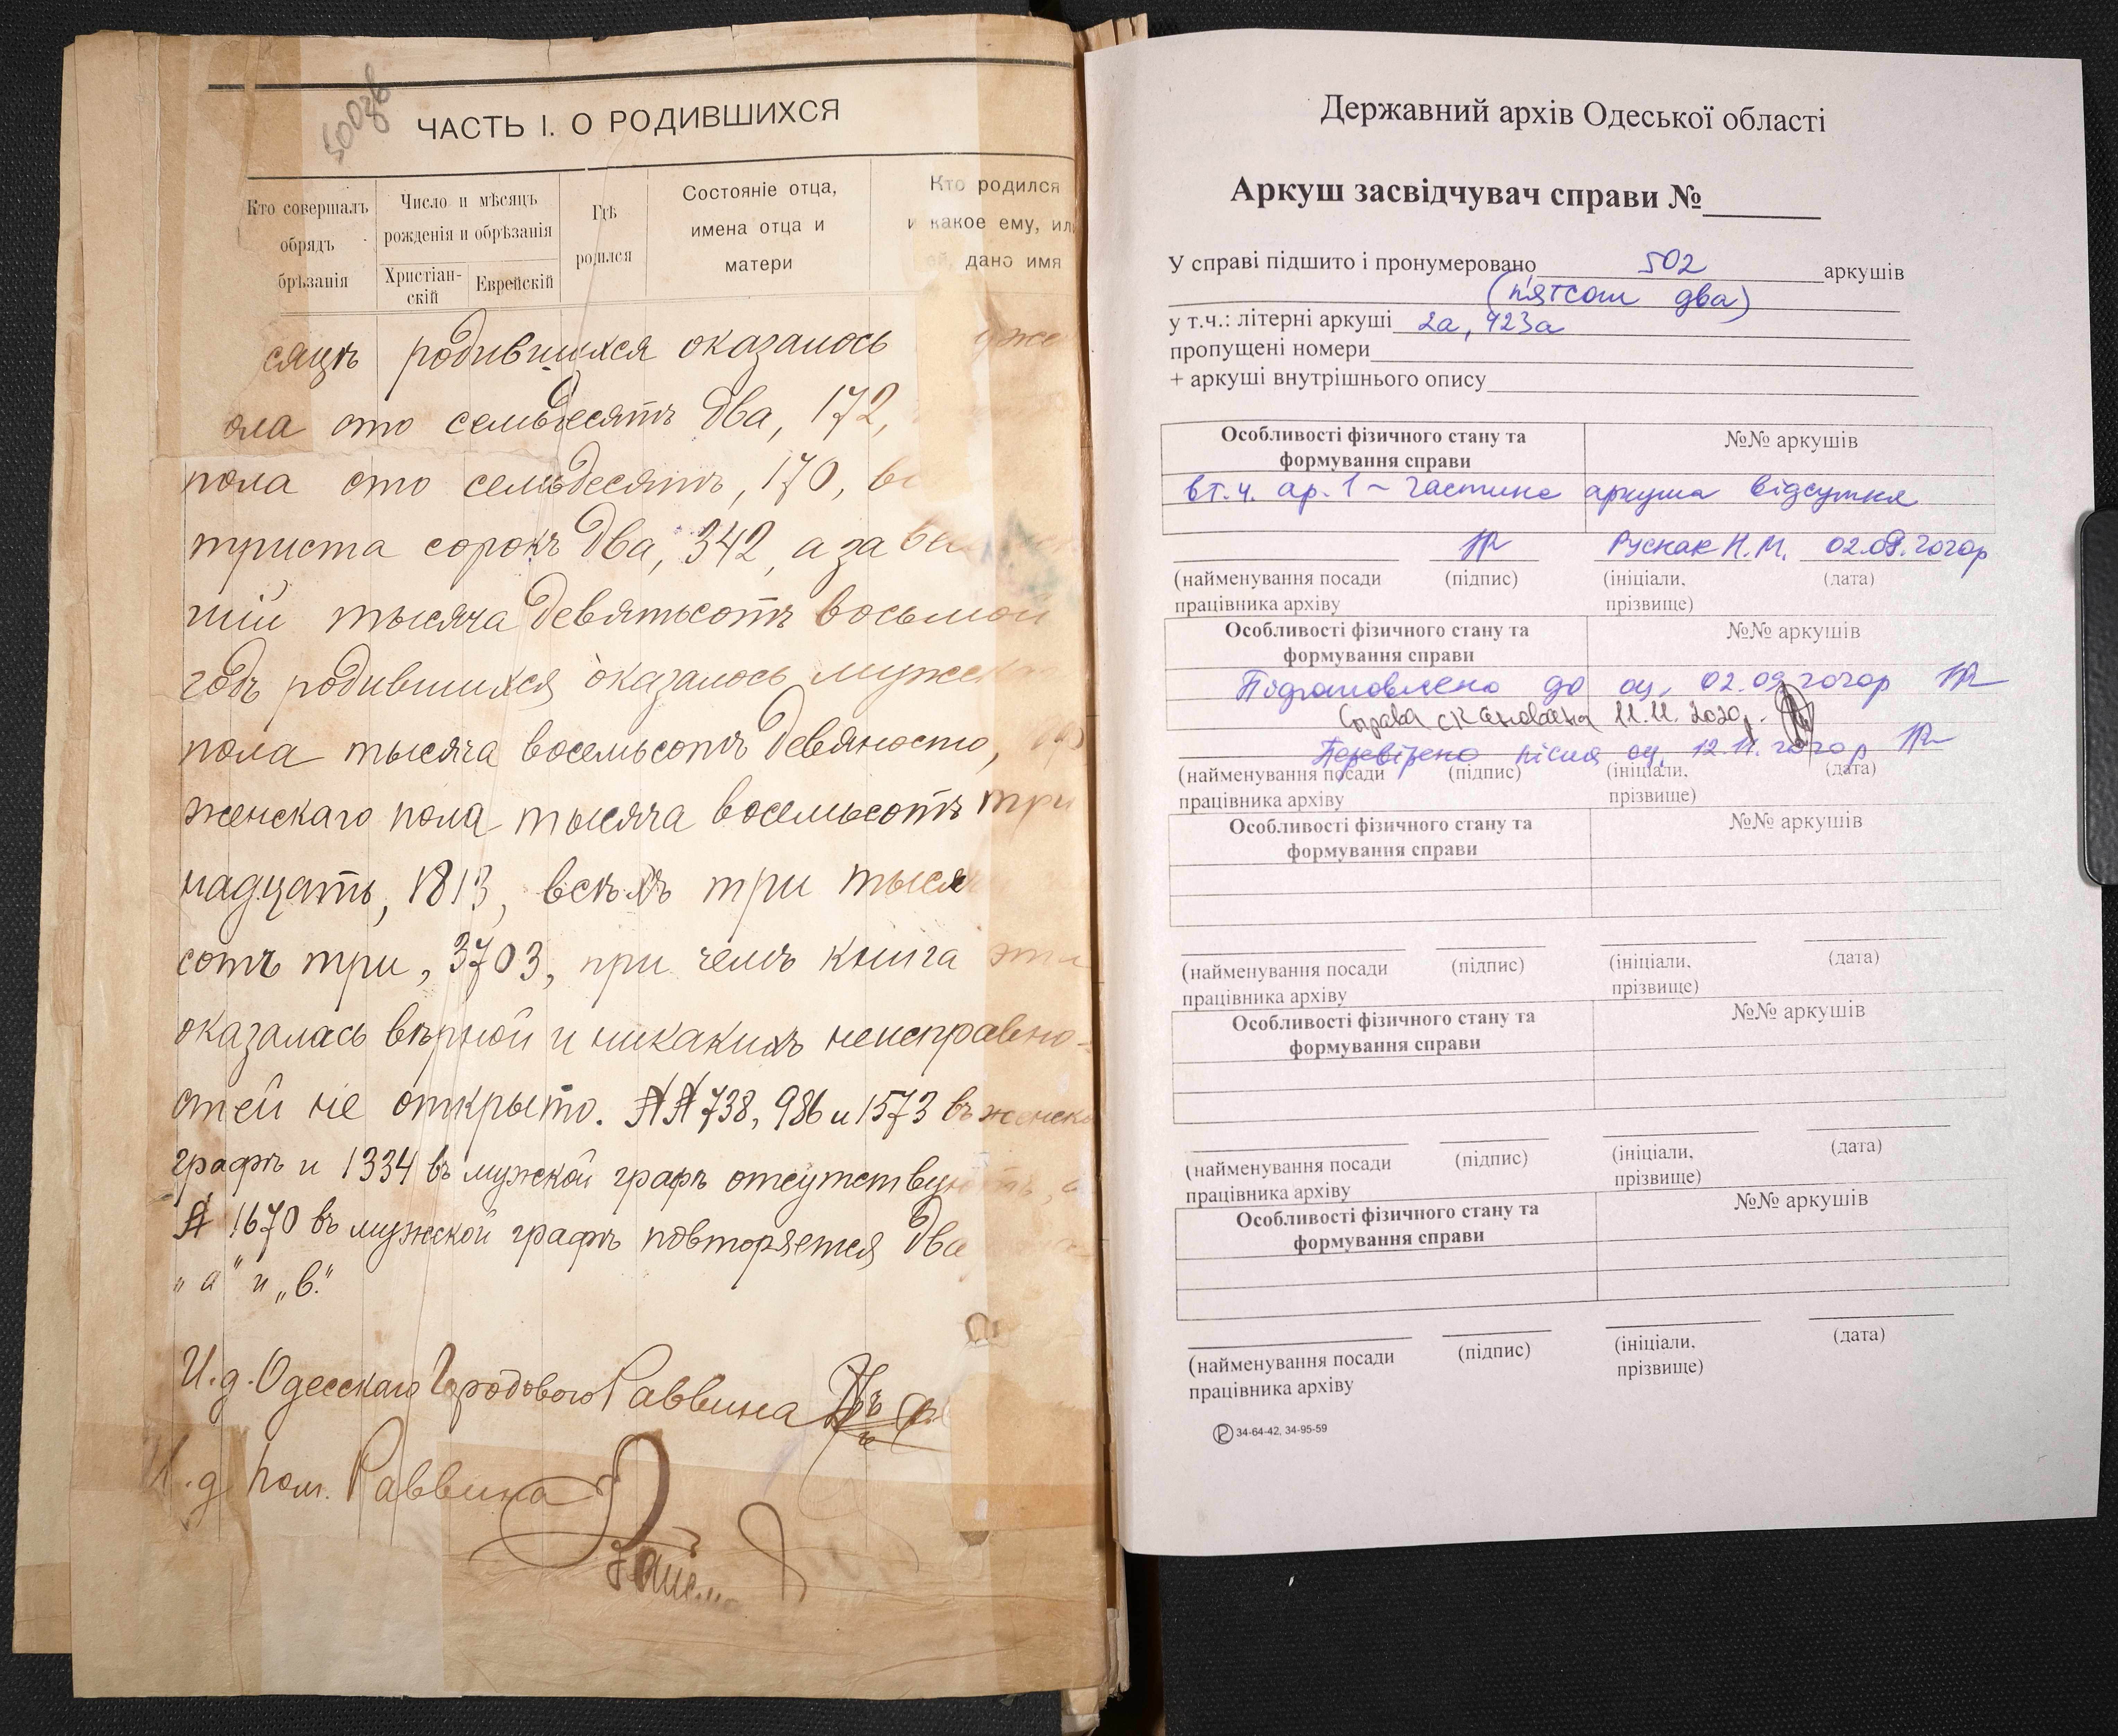 500зв
ЧАСТЬ I. О РОДИВШИХСЯ
Кто совершалъ
обрядъ
брѣзанія
Число и мѣсяцъ
рожденія и обрѣзанія
Христіан-
скій
Еврейскій
Гдѣ
родился
Состояніе отца,
имена отца и
матери
Кто родился
и какое ему, или
ей, дано имя
сяцъ родившихся оказалось муже
ола сто семьдесятъ два, 172,
пола сто семьдесятъ, 170, вс
триста сорокъ два, 342, а за ве
шій тысяча девятьсотъ восьмой
годъ родившихся оказалось мужск
пола тысяча восемьсотъ девяносто,
женскаго пола тысяча восемьсотъ три
надцать, 1813, всѣхъ три тысяч
сотъ три, 3703, при чемъ книга эта
оказалась вѣрной и никакихъ неисправно-
стей не открыто. №№ 738, 986 и 1573 въ женско
графѣ и 1334 въ мужской графѣ отсутствуютъ, а
№ 1670 въ мужской графѣ повторяется два
„а" и „в."
И.д. Одесскаго Городового Раввина
И.д. пом. Раввина
Державний архів Одеської області
Аркуш засвідчувач справи №
У справі підшито і пронумеровано 502 аркушів
(п'ятсот два)
у т.ч.: літерні аркуші 2а, 423а
пропущені номери
+ аркуші внутрішнього опису
Особливості фізичного стану та
формування справи
№№ аркушів
в т.ч. ар. 1 – частина аркуша відсутня
Руснак Н.М. 02.09.2020р
(найменування посади
працівника архіву
(підпис)
(ініціали,
прізвище)
(дата)
Особливості фізичного стану та
формування справи
№№ аркушів
Підготовлено до оц. 02.09.2020р
Справа сканована 11.11.2020р.
Перевірено після оц. 12.11.2020р
(найменування посади
працівника архіву
(підпис)
(ініціали,
прізвище)
(дата)
Особливості фізичного стану та
формування справи
№№ аркушів
(найменування посади
працівника архіву
(підпис)
(ініціали,
прізвище)
(дата)
Особливості фізичного стану та
формування справи
№№ аркушів
(найменування посади
працівника архіву
(підпис)
(ініціали,
прізвище)
(дата)
Особливості фізичного стану та
формування справи
№№ аркушів
(найменування посади
працівника архіву
(підпис)
(ініціали,
прізвище)
(дата)
34-64-42, 34-95-59